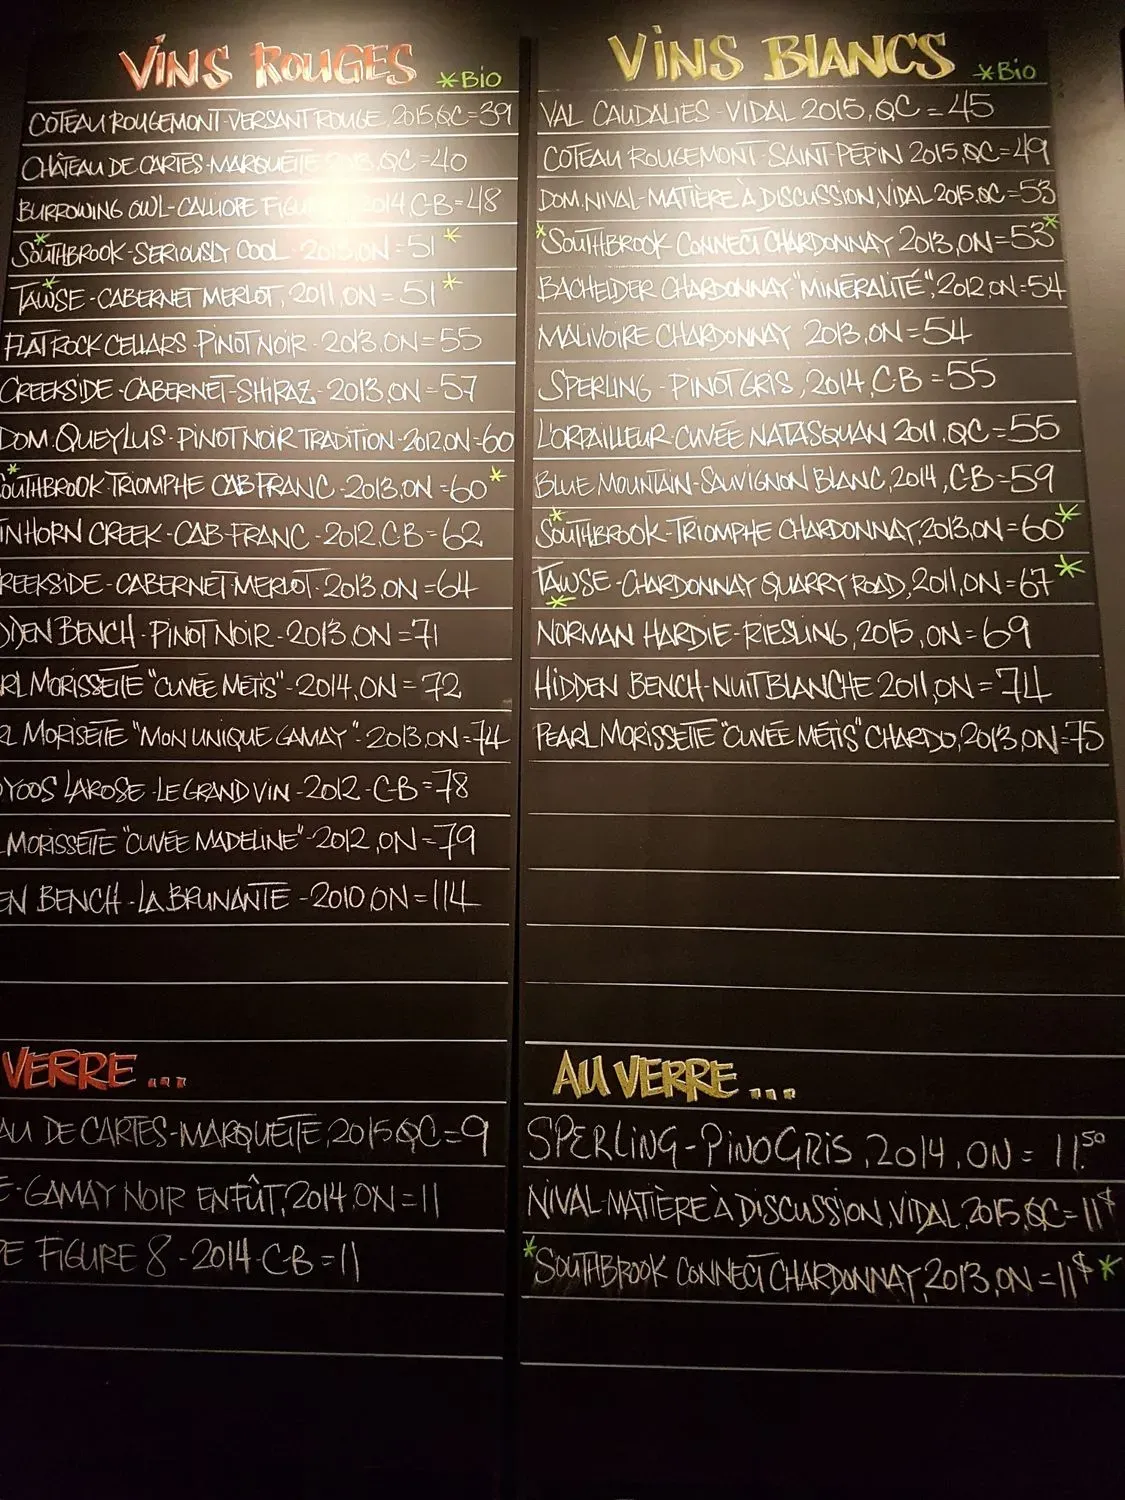 VINS ROUGES *BIO
COTEAU ROUGEMONT-VERSANT ROUGE, 2015, QC = 39
CHÂTEAU DE CARTES-MARQUETTE QC = 40
BURROWING OWL-CALLIOPE 2014, C-B = 48
*SOUTHBROOK-SERIOUSLY COOL ON = 51 *
TAWSE - CABERNET MERLOT, 2011, ON = 51 *
FLAT ROCK CELLARS - PINOT NOIR - 2013, ON = 55
CREEKSIDE - CABERNET-SHIRAZ - 2013, ON = 57
DOM. QUEYLUS - PINOT NOIR TRADITION - 2012, ON - 60
*OUTHBROOK TRIOMPHE CAB FRANC - 2013, ON = 60 *
INHORN CREEK - CAB-FRANC - 2012, C-B = 62
REEKSIDE - CABERNET-MERLOT - 2013, ON = 64
DDEN BENCH - PINOT NOIR - 2013, ON = 71
RL MORISSETTE "CUVÉE MÉTIS" - 2014, ON = 72
RL MORISETTE "MON UNIQUE GAMAY" - 2013, ON = 74
OYOOS LAROSE - LE GRAND VIN - 2012 - C-B = 78
MORISSETTE "CUVÉE MADELINE" - 2012, ON = 79
EN BENCH - LA BRUNANTE - 2010 ON = 114
VERRE ...
AU DE CARTES-MARQUETTE, 2015 QC = 9
E - GAMAY NOIR EN FÛT, 2014, ON = 11
PE FIGURE 8 - 2014 - C-B = 11
VINS BLANCS *BIO
VAL CAUDALIES - VIDAL 2015, QC = 45
COTEAU ROUGEMONT - SAINT-PÉPIN 2015, QC = 49
DOM. NIVAL - MATIÈRE À DISCUSSION, VIDAL 2015, QC = 53
*SOUTHBROOK CONNECT CHARDONNAY 2013, ON = 53 *
BACHELDER CHARDONNAY "MINÉRALITÉ", 2012, ON = 54
MALIVOIRE CHARDONNAY 2013, ON = 54
SPERLING - PINOT GRIS, 2014, C-B = 55
L'ORPAILLEUR - CUVÉE NATASQUAN 2011, QC = 55
BLUE MOUNTAIN - SAUVIGNON BLANC, 2014, C-B = 59
*SOUTHBROOK - TRIOMPHE CHARDONNAY, 2013, ON = 60 *
TAWSE - CHARDONNAY QUARRY ROAD, 2011, ON = 67 *
NORMAN HARDIE - RIESLING, 2015, ON = 69
HIDDEN BENCH - NUIT BLANCHE 2011, ON = 74
PEARL MORISSETTE "CUVÉE MÉTIS" CHARDO, 2013, ON = 75
AU VERRE ...
SPERLING - PINO GRIS, 2014, ON = 11.50
NIVAL - MATIÈRE À DISCUSSION, VIDAL 2015, QC = 11$
*SOUTHBROOK CONNECT CHARDONNAY, 2013, ON = 11$ *